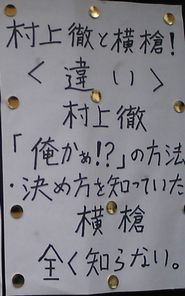 村上徹と横槍!
<違い>
村上徹
「俺かぁ!?」の方法
・決め方を知っていた
横槍
全く知らない。